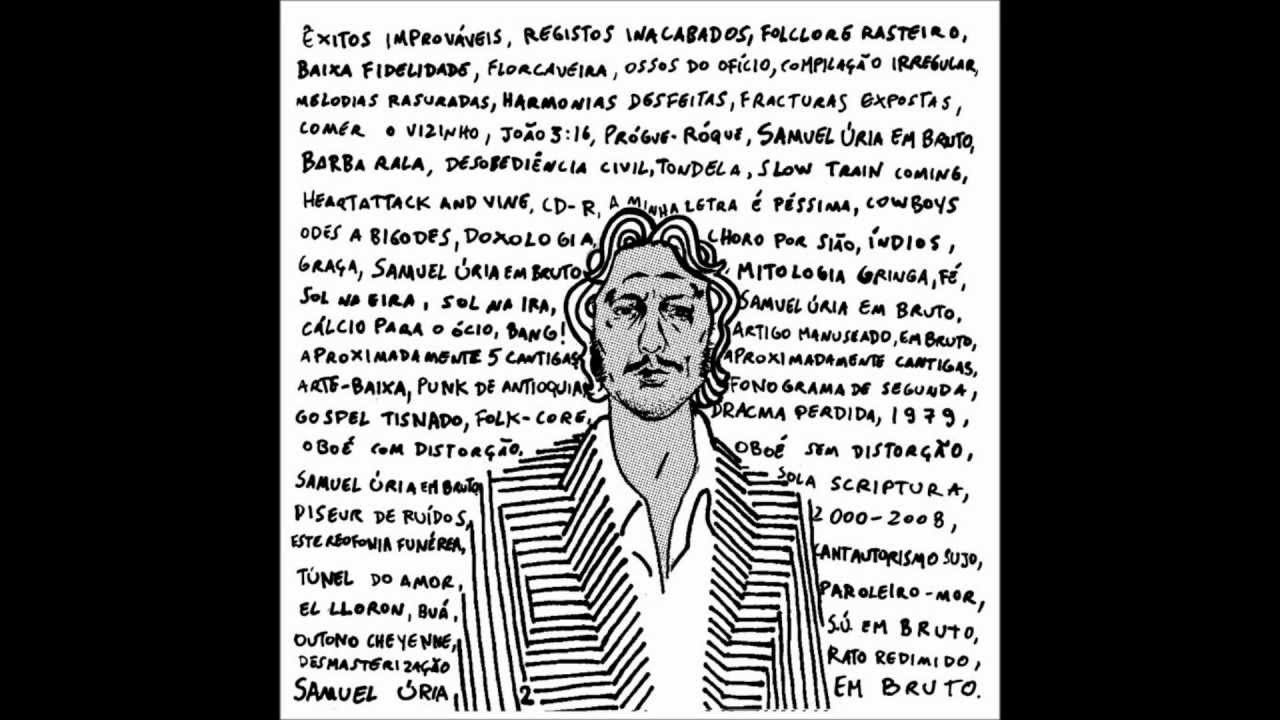 ÊXITOS IMPROVÁVEIS, REGISTOS INACABADOS, FOLCLORE RASTEIRO,
BAIXA FIDELIDADE, FLORCAVEIRA, OSSOS DO OFÍCIO, COMPILAÇÃO IRREGULAR,
MELODIAS RASURADAS, HARMONIAS DESFEITAS, FRACTURAS EXPOSTAS,
COMER O VIZINHO, JOÃO 3:16, PRÓGUE-RÓQUE, SAMUEL ÚRIA EM BRUTO,
BARBA RALA, DESOBEDIÊNCIA CIVIL, TONDELA, SLOW TRAIN COMING,
HEARTATTACK AND VINE, CD-R, A MINHA LETRA É PÉSSIMA, COWBOYS
ODES A BIGODES, DOXOLOGIA, CHORO POR SIÃO, ÍNDIOS,
GRAÇA, SAMUEL ÚRIA EM BRUTO, MITOLOGIA GRINGA, FÉ,
SOL NA EIRA, SOL NA IRA, SAMUEL ÚRIA EM BRUTO,
CÁLCIO PARA O ÓCIO, BANG! ARTIGO MANUSEADO, EM BRUTO,
APROXIMADAMENTE 5 CANTIGAS, APROXIMADAMENTE CANTIGAS,
ARTE-BAIXA, PUNK DE ANTIOQUIA, FONOGRAMA DE SEGUNDA,
GOSPEL TISNADO, FOLK-CORE, DRACMA PERDIDA, 1979,
OBOÉ COM DISTORÇÃO, OBOÉ SEM DISTORÇÃO,
SAMUEL ÚRIA EM BRUTO, SOLA SCRIPTURA,
DISEUR DE RUÍDOS, 2000-2008,
ESTEREOFONIA FUNÉREA, CANTAUTORISMO SUJO,
TÚNEL DO AMOR, PAROLEIRO-MOR,
EL LLORON, BUÁ, S.Ú. EM BRUTO,
OUTONO CHEYENNE, RATO REDIMIDO,
DESMASTERIZAÇÃO
SAMUEL ÚRIA 2 EM BRUTO.